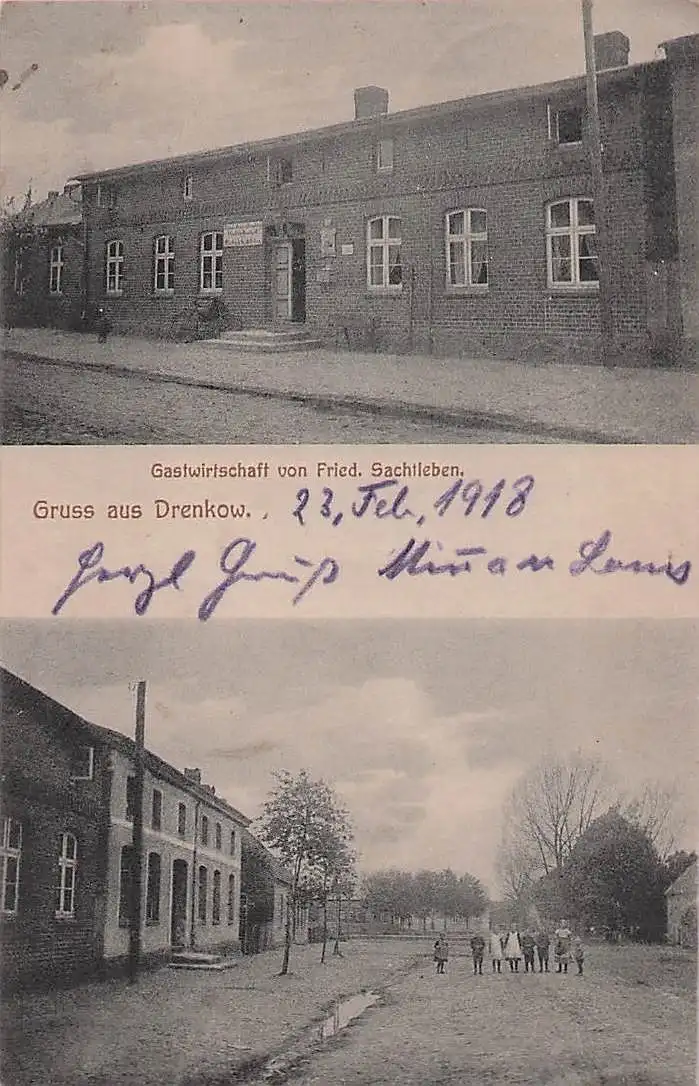 Gastwirtschaft von Fried. Sachtleben.
Gruss aus Drenkow. 23, Feb, 1918
Herzl Gruß